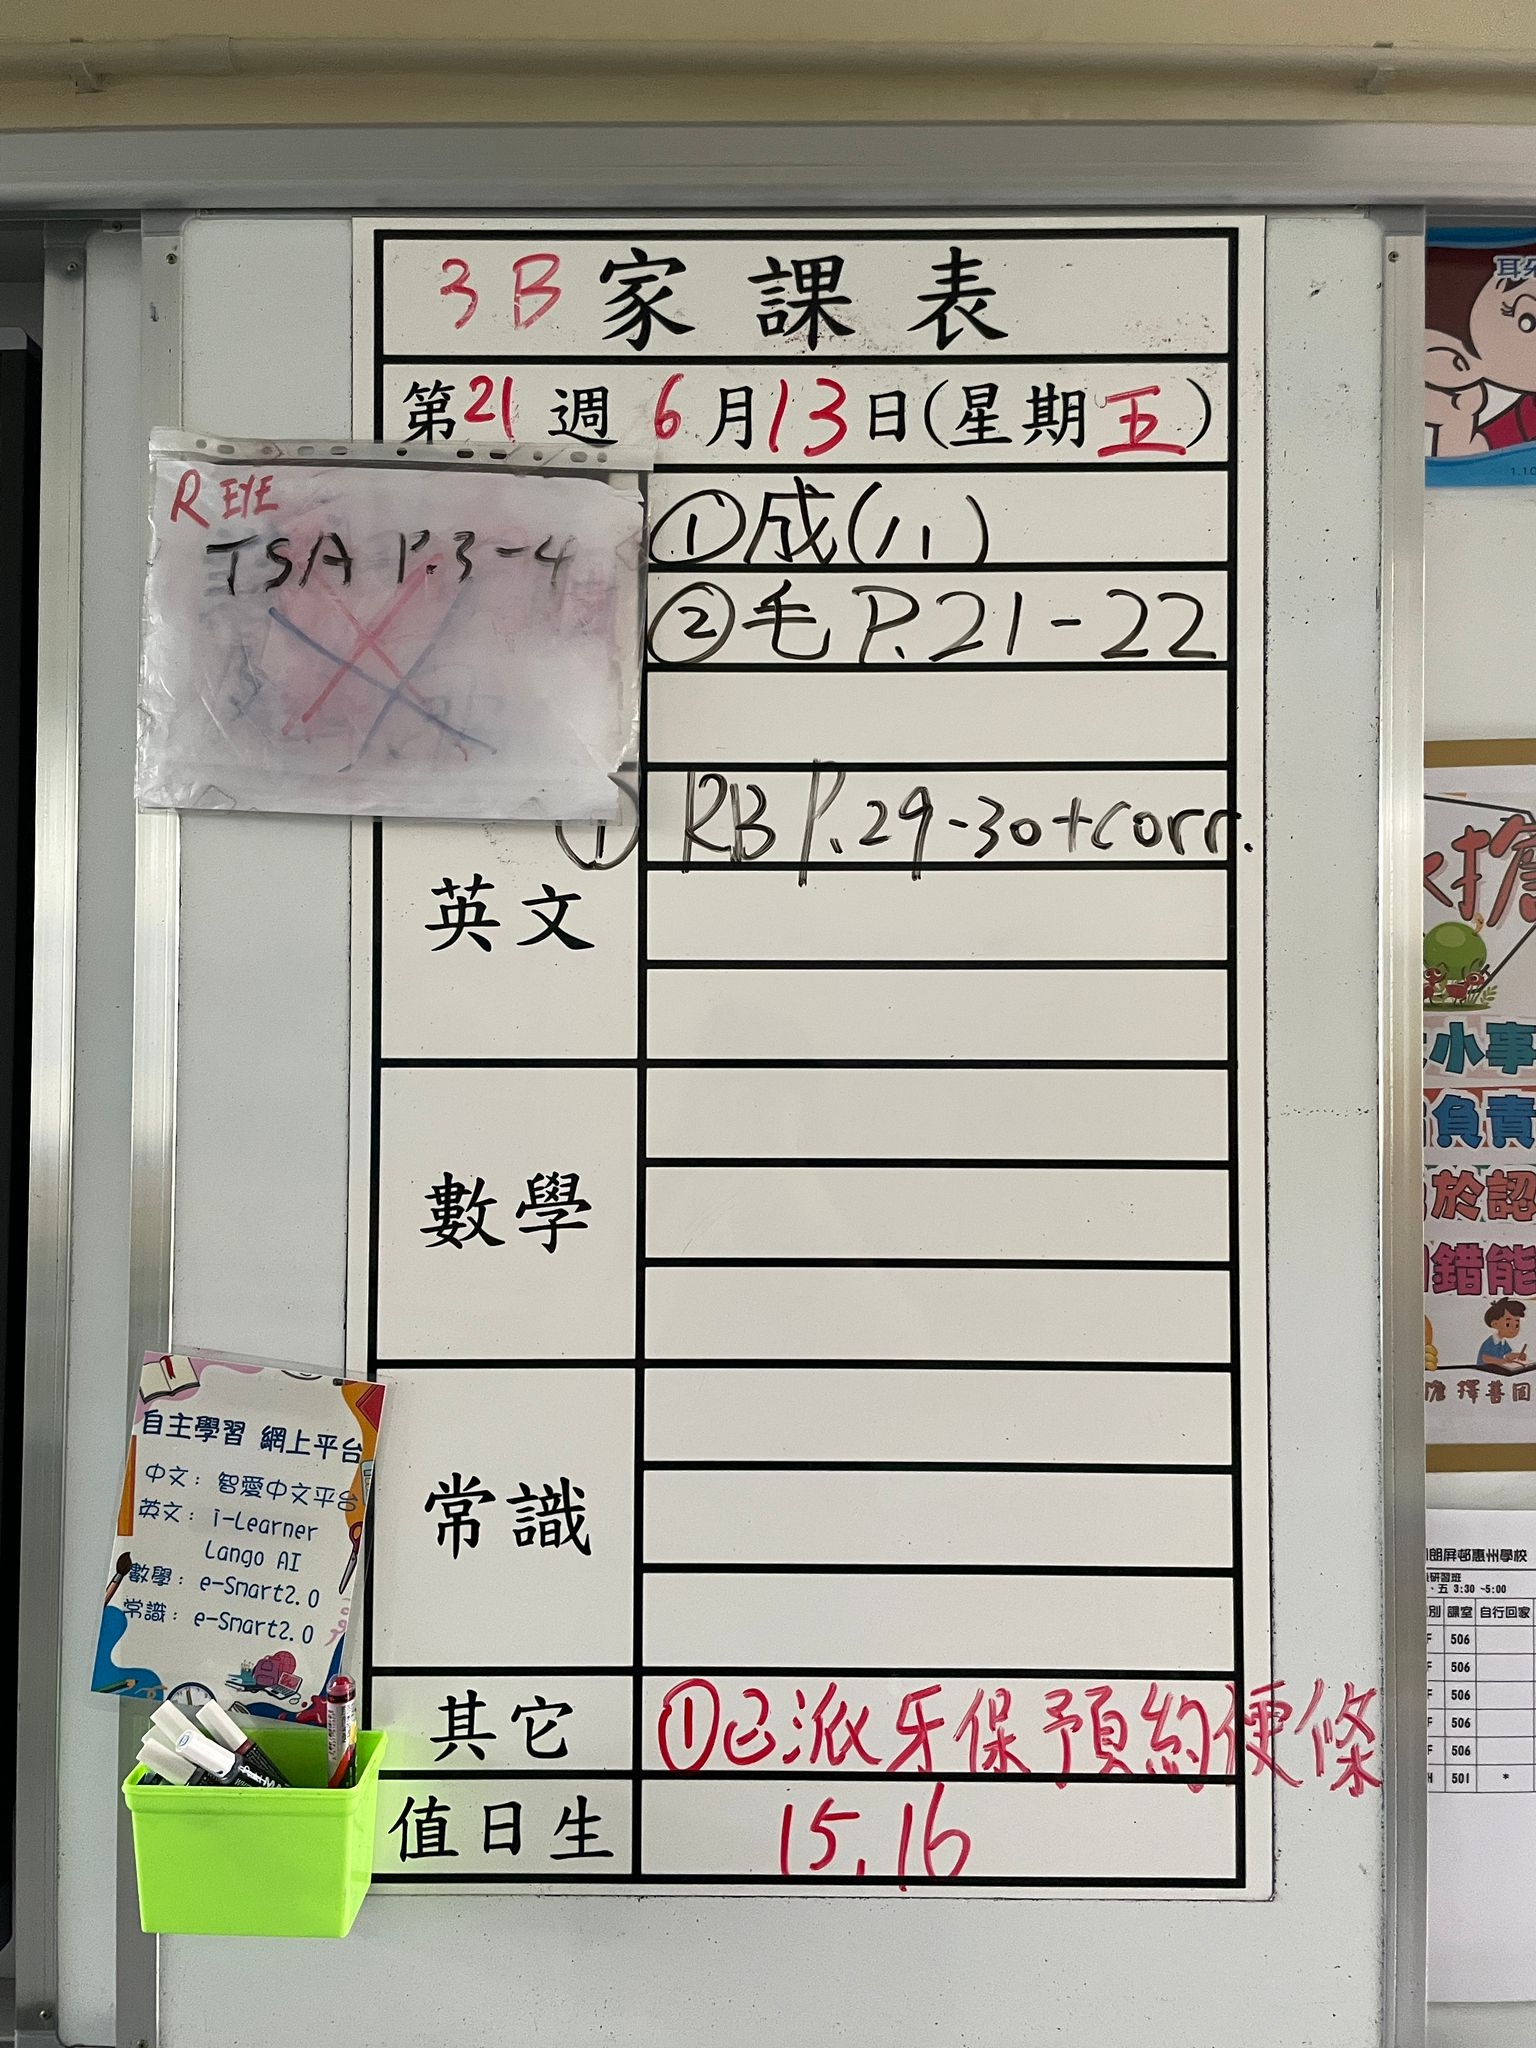 3B 家課表
第21週 6月13日(星期五)
R EYE
TSA P.3-4
①成(八)
②毛 P.21-22
① RB P.29-30+corr.
英文
數學
常識
其它
①已派牙保預約便條
值日生
15, 16
自主學習 網上平台
中文: 智愛中文平台
英文: i-Learner
Lango AI
數學: e-Smart2.0
常識: e-Smart2.0
1.10
小事
負責
於認
錯能
擇善固
朗屏邨惠州學校
研習班
、五 3:30 ~5:00
別 課室 自行回家
F 506
F 506
F 506
F 506
F 506
H 501 *